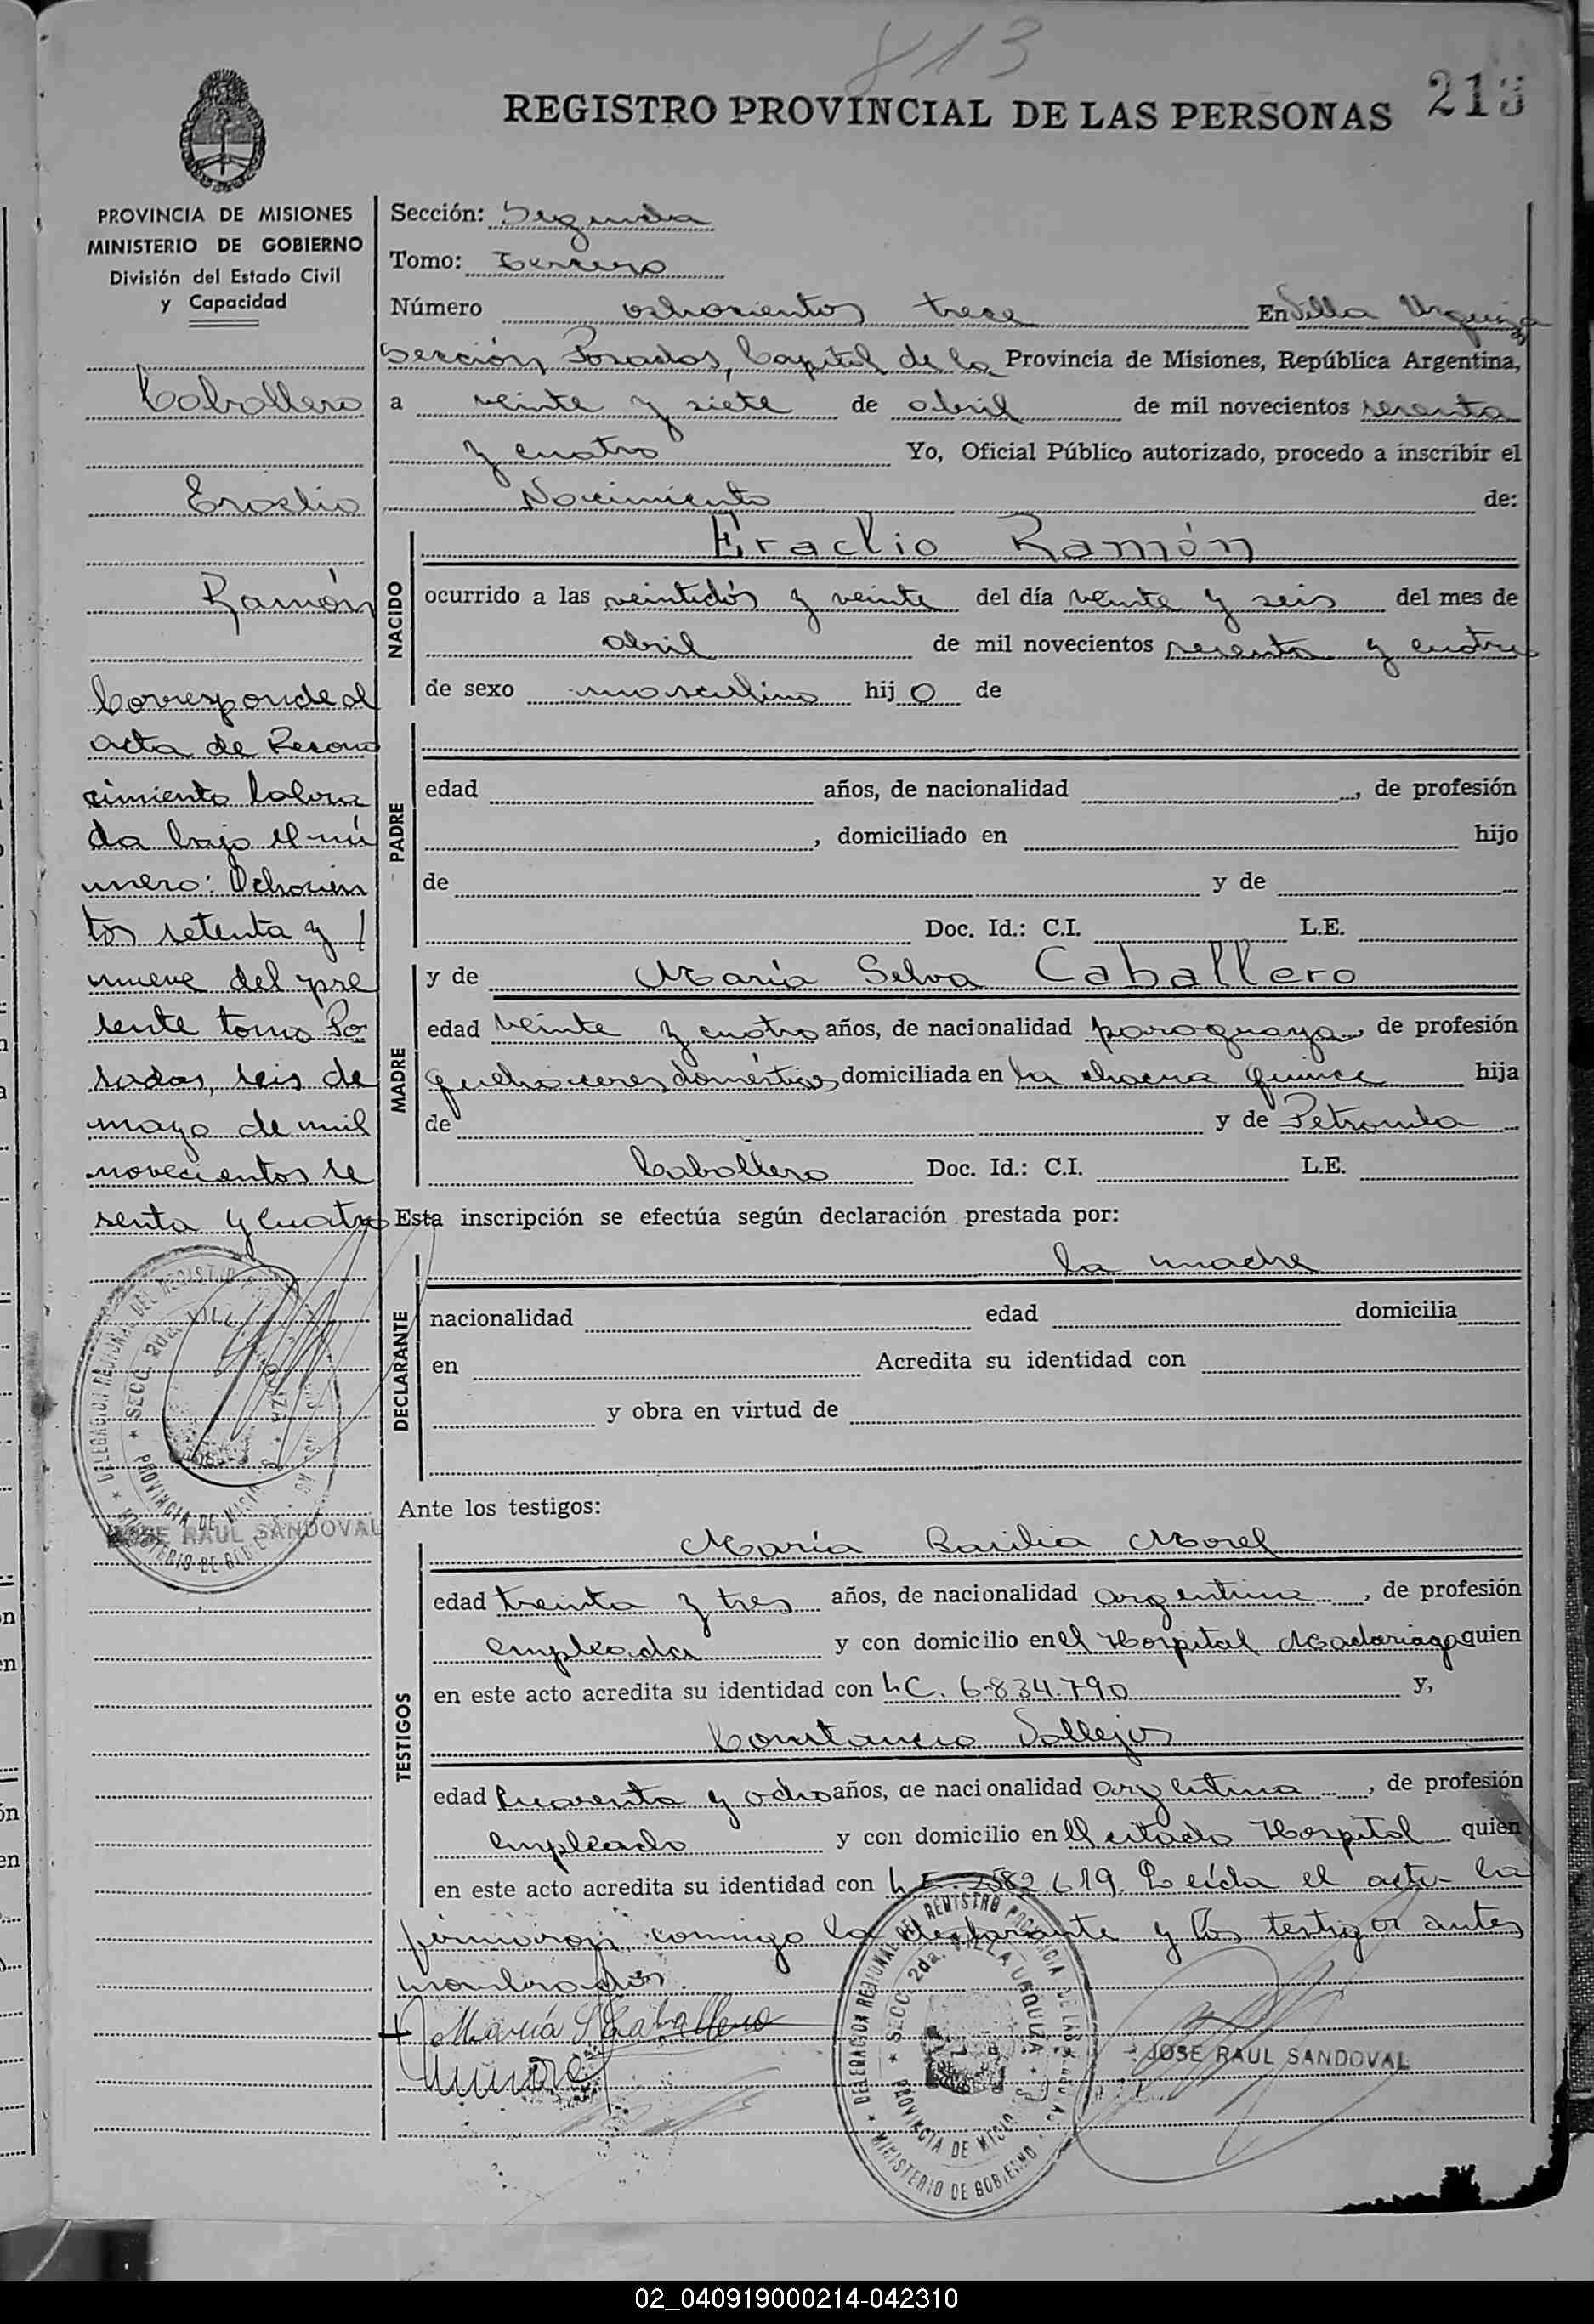 813
REGISTRO PROVINCIAL DE LAS PERSONAS 213
PROVINCIA DE MISIONES
MINISTERIO DE GOBIERNO
División del Estado Civil
y Capacidad
Caballero
Eraclio
Ramón
Corresponde al
acta de Recono
cimiento labra
da bajo el nú
mero: Ochocien
tos setenta y /
nueve del pre
sente tomo Po
sadas, seis de
mayo de mil
novecientos se
senta y cuatro
JOSE RAUL SANDOVAL
Sección: Segunda
Tomo: Tercero
Número ochocientos trece En Villa Urquiza
Sección Posadas, Capital de la Provincia de Misiones, República Argentina,
a veinte y siete de abril de mil novecientos sesenta
y cuatro Yo, Oficial Público autorizado, procedo a inscribir el
Nacimiento de:
NACIDO
Eraclio Ramón
ocurrido a las veintidós y veinte del día veinte y seis del mes de
abril de mil novecientos sesenta y cuatro
de sexo masculino hijo de
PADRE
edad años, de nacionalidad , de profesión
, domiciliado en hijo
de y de
Doc. Id.: C.I. L.E.
MADRE
y de María Selva Caballero
edad veinte y cuatro años, de nacionalidad paraguaya, de profesión
quehaceres domésticos domiciliada en la chacra quince hija
de y de Petronila
Caballero Doc. Id.: C.I. L.E.
Esta inscripción se efectúa según declaración prestada por:
DECLARANTE
la madre
nacionalidad edad domicilia
en Acredita su identidad con
y obra en virtud de
Ante los testigos:
TESTIGOS
María Basilia Morel
edad treinta y tres años, de nacionalidad argentina, de profesión
empleada y con domicilio en el Hospital Madariaga quien
en este acto acredita su identidad con L.C. 6.834.790 y,
Constancio Vallejos
edad cuarenta y ocho años, de nacionalidad argentina, de profesión
empleado y con domicilio en el citado Hospital quien
en este acto acredita su identidad con L.E. 2582.619. Leída el acta la
firmaron conmigo la declarante y los testigos antes
nombrados.
María S Caballero
DELEGACION REGIONAL DEL REGISTRO PROVINCIAL DE LAS
SECC. 2da. VILLA URQUIZA
PROVINCIA DE MISIONES
MINISTERIO DE GOBIERNO
JOSE RAUL SANDOVAL
02_040919000214-042310